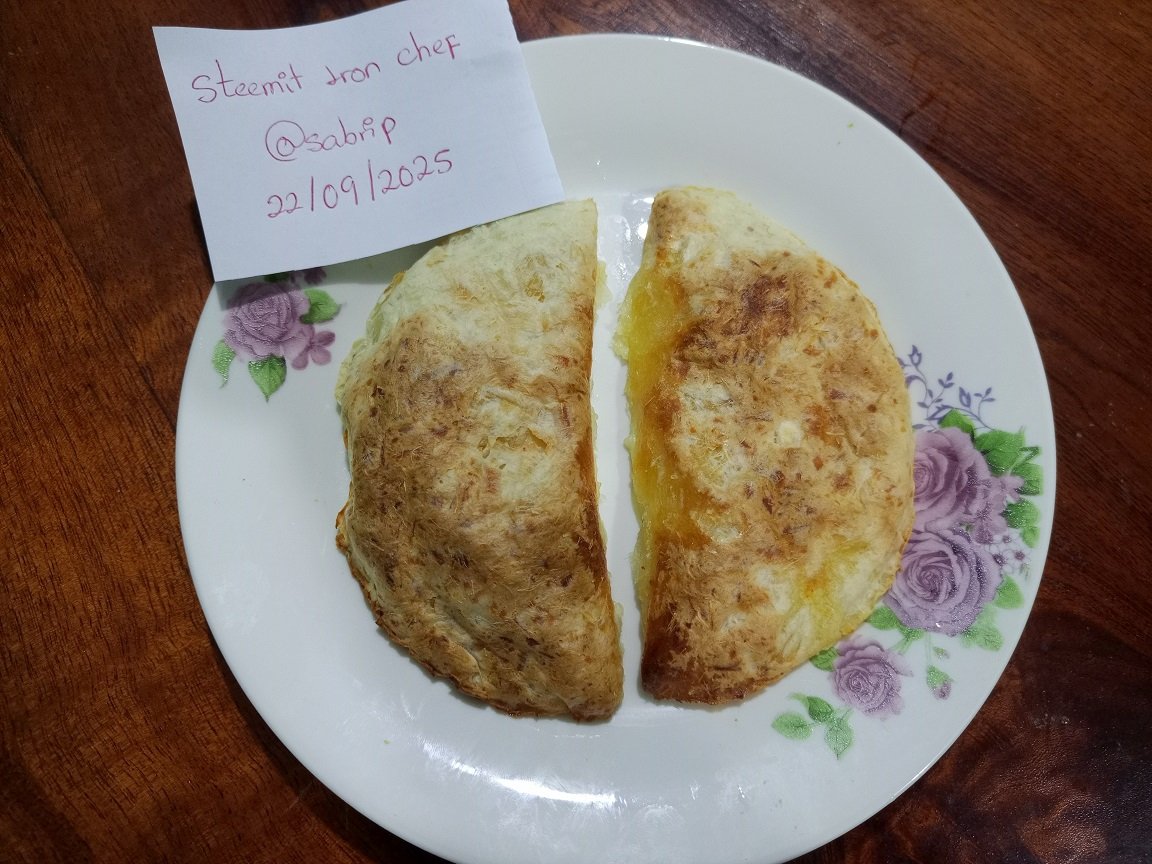 Steemit Iron chef
@sabrip
22/09/2025